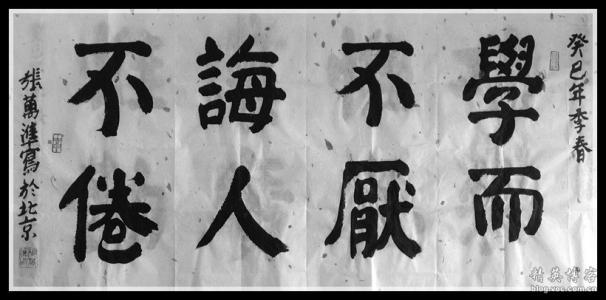 癸巳年季春
學而
不厭
誨人
不倦
張萬準寫於北京
精英博客